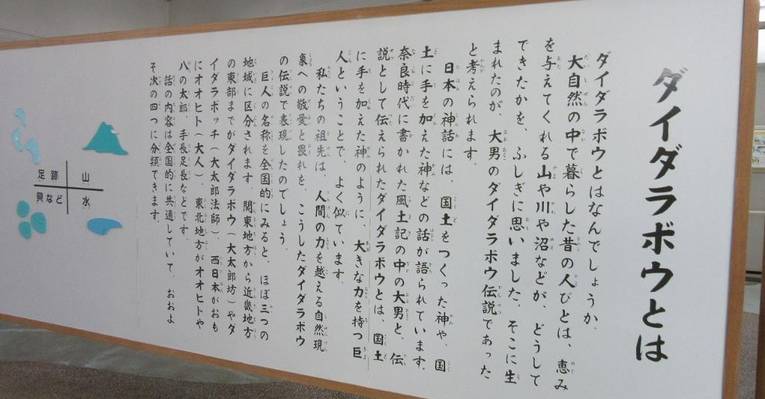 ダイダラボウとは
ダイダラボウとはなんでしょうか。
大自然の中で暮らした昔の人びとは、恵み
を与えてくれる山や川や沼などが、どうして
できたかを、ふしぎに思いました。そこに生
まれたのが、大男のダイダラボウ伝説であった
と考えられます。
日本の神話には、国土をつくった神や、国
土に手を加えた神などの話が語られています。
奈良時代に書かれた風土記の中の大男と、伝
説として伝えられたダイダラボウとは、国土
に手を加えた神のように、大きな力を持つ巨
人ということで、よく似ています。
私たちの祖先は、人間の力を越える自然現
象への敬愛と畏れを、こうしたダイダラボウ
の伝説で表現したのでしょう。
巨人の名称を全国的にみると、ほぼ三つの
地域に区分されます。関東地方から近畿地方
の東部までがダイダラボウ(大太郎坊)やダ
イダラボッチ(大太郎法師)、西日本がおも
にオオヒト(大人)、東北地方がオオヒトや
八の太郎、手長足長などです。
話の内容は全国的に共通していて、おおよ
そ次の四つに分類できます。
足跡 山
貝など 水